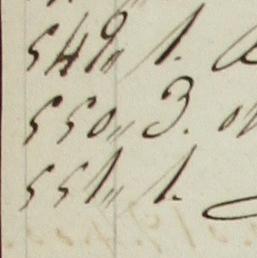 549„ 1.
550„ 3.
551„ 1.